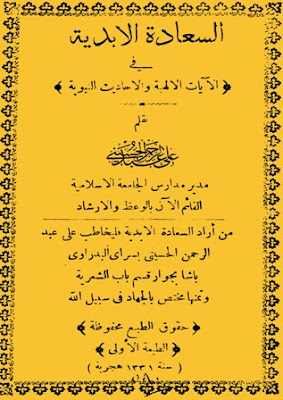 السعادة الابدية
في
﴿ الآيات الالهية والاحاديث النبوية ﴾
بقلم
علي عبد الرحمن الحسيني
مدير مدارس الجامعة الاسلامية
القائم الآن بالوعظ والارشاد
من أراد السعادة الابدية فليخاطب على عبد
الرحمن الحسيني بسراى البدراوى
باشا بجوار قسم باب الشعرية
وثمنها مختص بالجهاد فى سبيل الله
﴿ حقوق الطبع محفوظة ﴾
﴿ الطبعة الأولى ﴾
( سنة ١٣٣١ هجرية )